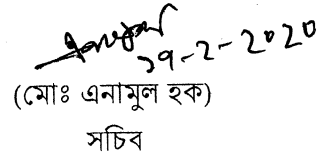 ১৭-২-২০২০
(মোঃ এনামুল হক)
সচিব